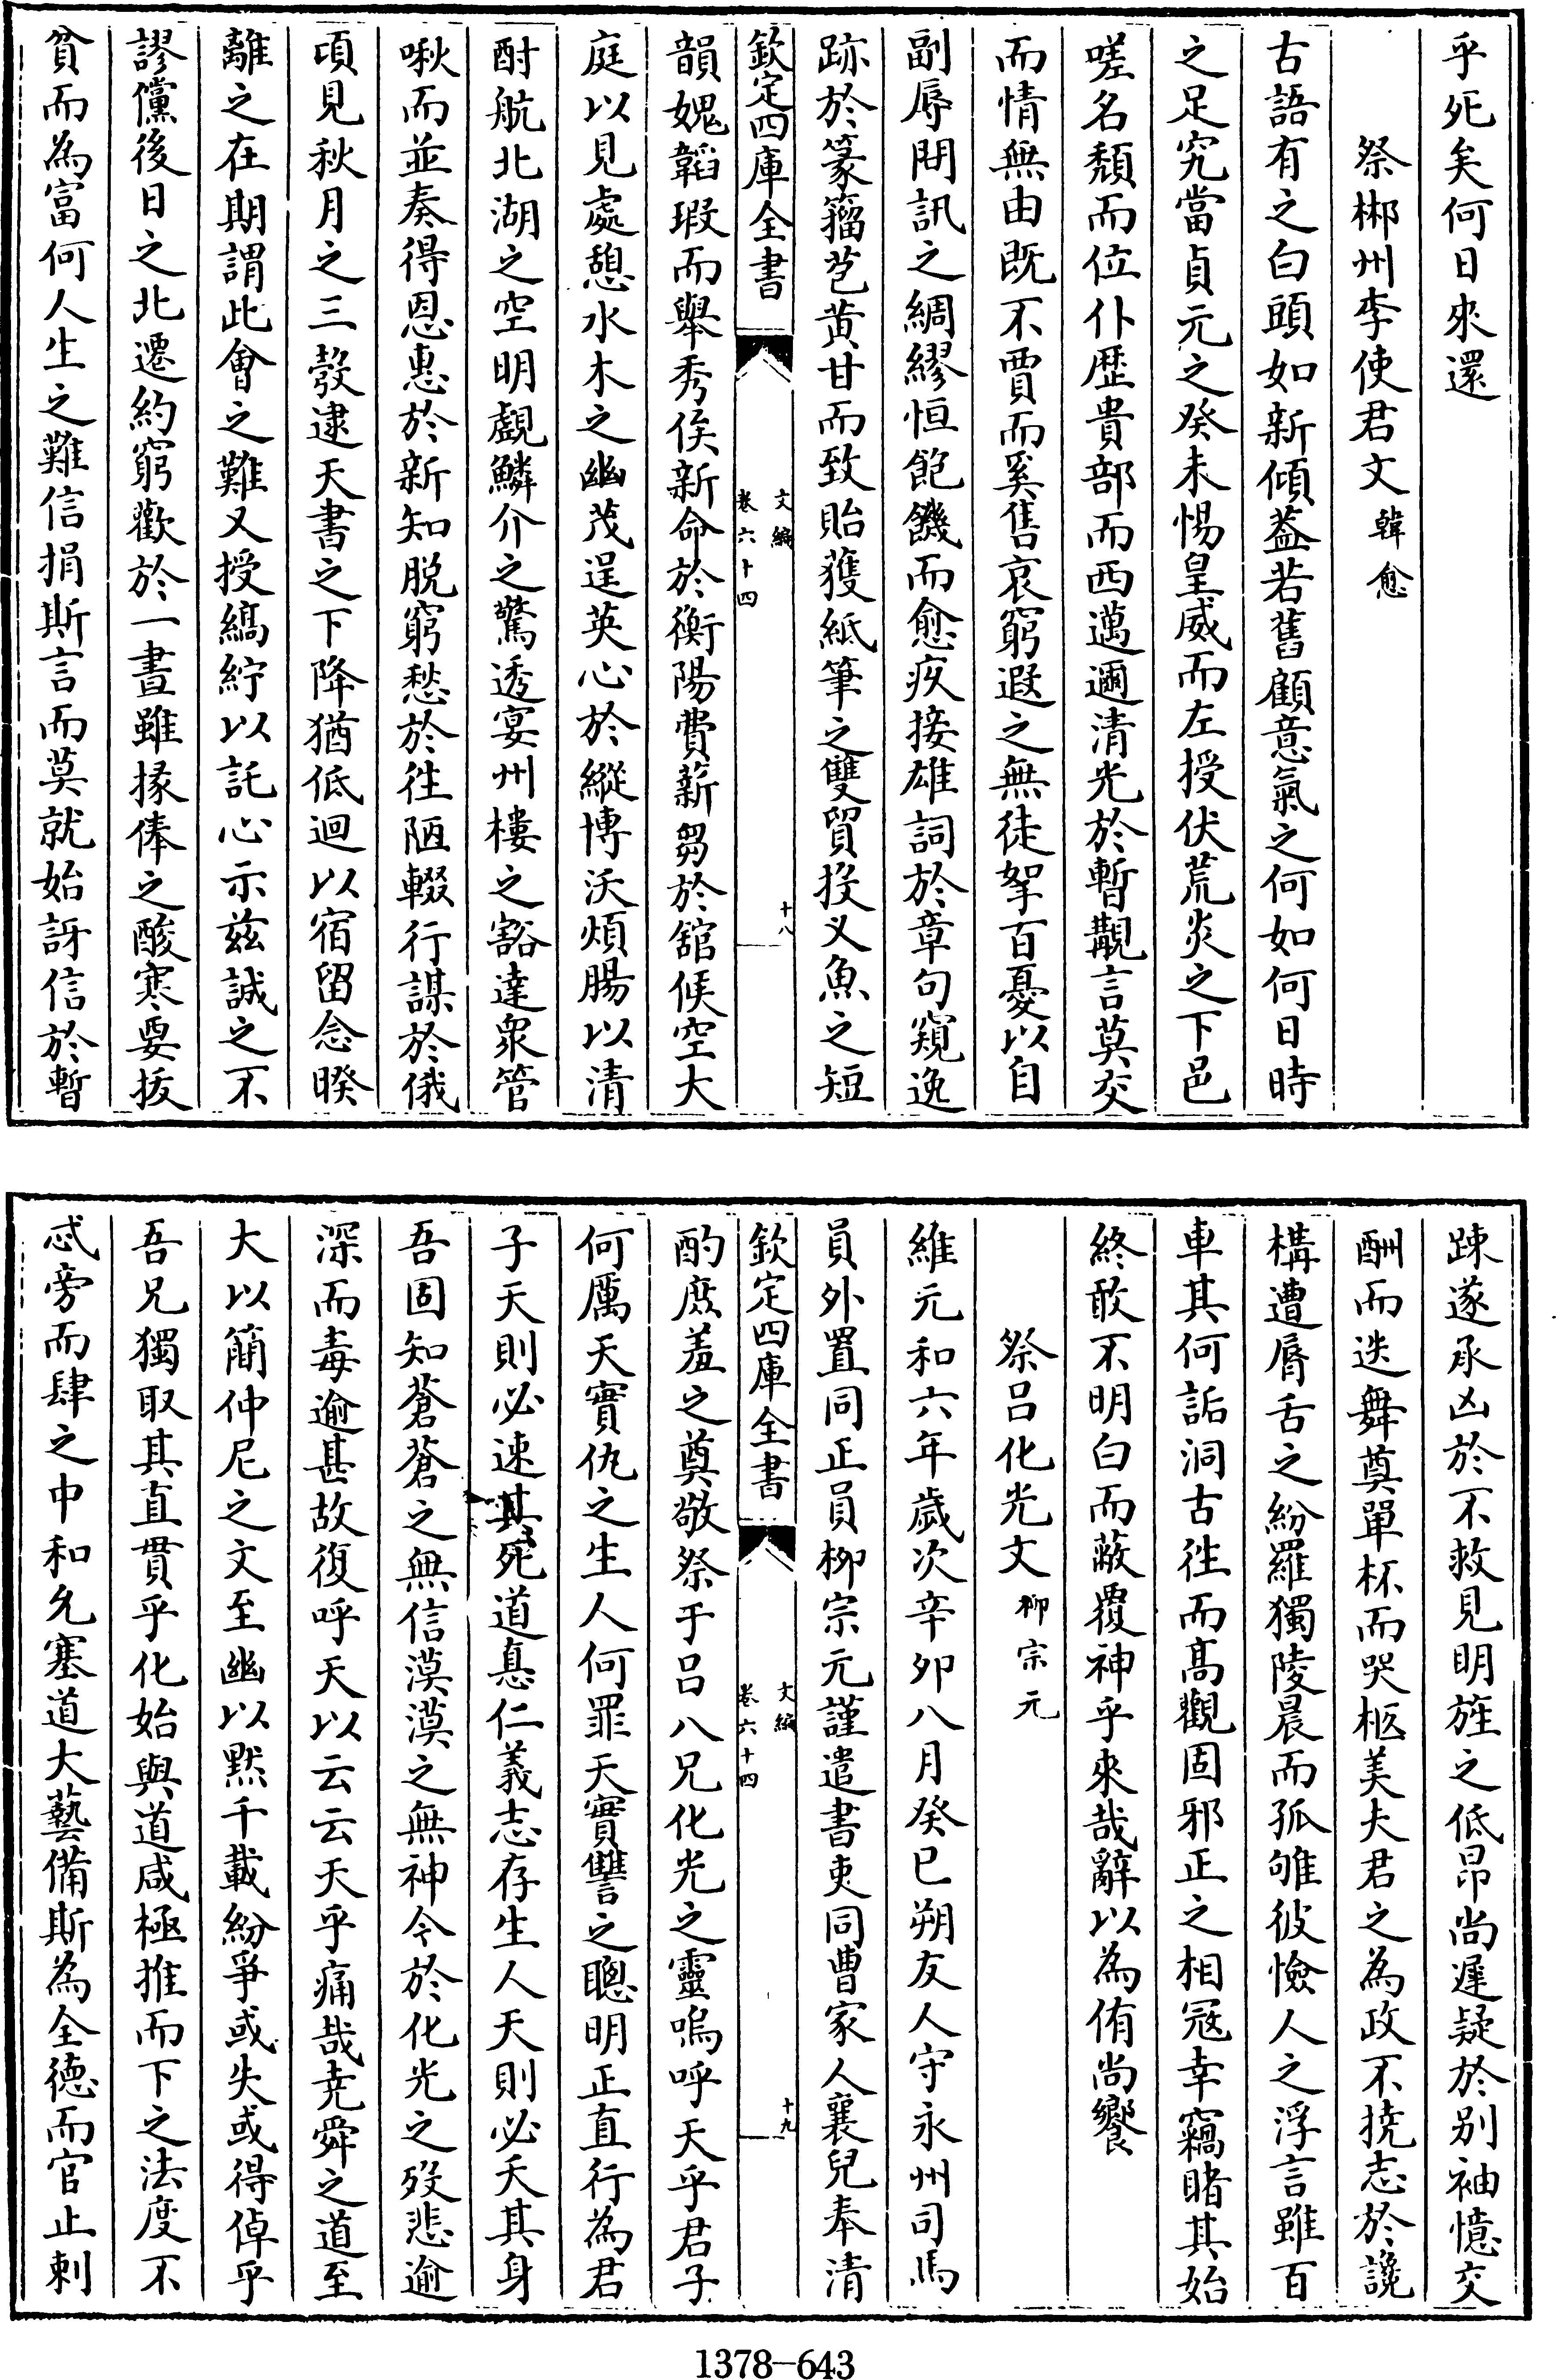 乎死矣何日來還
祭郴州李使君文 韓愈
古語有之白頭如新傾葢若舊顧意氣之何如何日時
之足究當貞元之癸未惕皇威而左授伏荒炎之下邑
嗟名頽而位仆歴貴部而西邁邇清光於暫覯言莫交
而情無由既不賈而奚售哀窮遐之無徒挐百憂以自
副辱問訊之綢繆恒飽饑而愈疚接雄詞於章句窺逸
跡於篆籀苞黄甘而致貽獲紙筆之雙貿投乂魚之短
欽定四庫全書
文編
卷六十四
十八
韻媿韜瑕而舉秀俟新命於衡陽費薪芻於舘候空大
庭以見處憩水木之幽茂逞英心於縱博沃煩腸以清
酎航北湖之空明覷鱗介之驚透宴州樓之豁達衆管
啾而並奏得恩惠於新知脱窮愁於徃陋輟行謀於俄
頃見秋月之三彀逮天書之下降猶低迴以宿留念睽
離之在期謂此會之難又授縞紵以託心示兹誠之不
謬儻後日之北遷約窮歡於一晝雖掾俸之酸寒要拔
貧而為富何人生之難信捐斯言而莫就始訝信於暫
疎遂承凶於不救見明旌之低昂尚遲疑於别袖憶交
酬而迭舞奠單杯而哭柩美夫君之為政不撓志於讒
構遭脣舌之紛羅獨陵晨而孤雊彼憸人之浮言雖百
車其何詬洞古徃而髙觀固邪正之相冦幸竊睹其始
終敢不明白而蔽覆神乎來哉辭以為侑尚饗
祭吕化光文 柳宗元
維元和六年歲次辛夘八月癸巳朔友人守永州司馬
員外置同正員柳宗元謹遣書吏同曹家人襄兒奉清
欽定四庫全書
文編
卷六十四
十九
酌庶羞之奠敬祭于吕八兄化光之靈嗚呼天乎君子
何厲天實仇之生人何罪天實讐之聰明正直行為君
子天則必速其死道悳仁義志存生人天則必夭其身
吾固知蒼蒼之無信漠漠之無神今於化光之歿悲逾
深而毒逾甚故復呼天以云云天乎痛哉尭舜之道至
大以簡仲尼之文至幽以黙千載紛爭或失或得倬乎
吾兄獨取其直貫乎化始與道咸極推而下之法度不
忒旁而肆之中和允塞道大藝備斯為全德而官止刺
1378-643